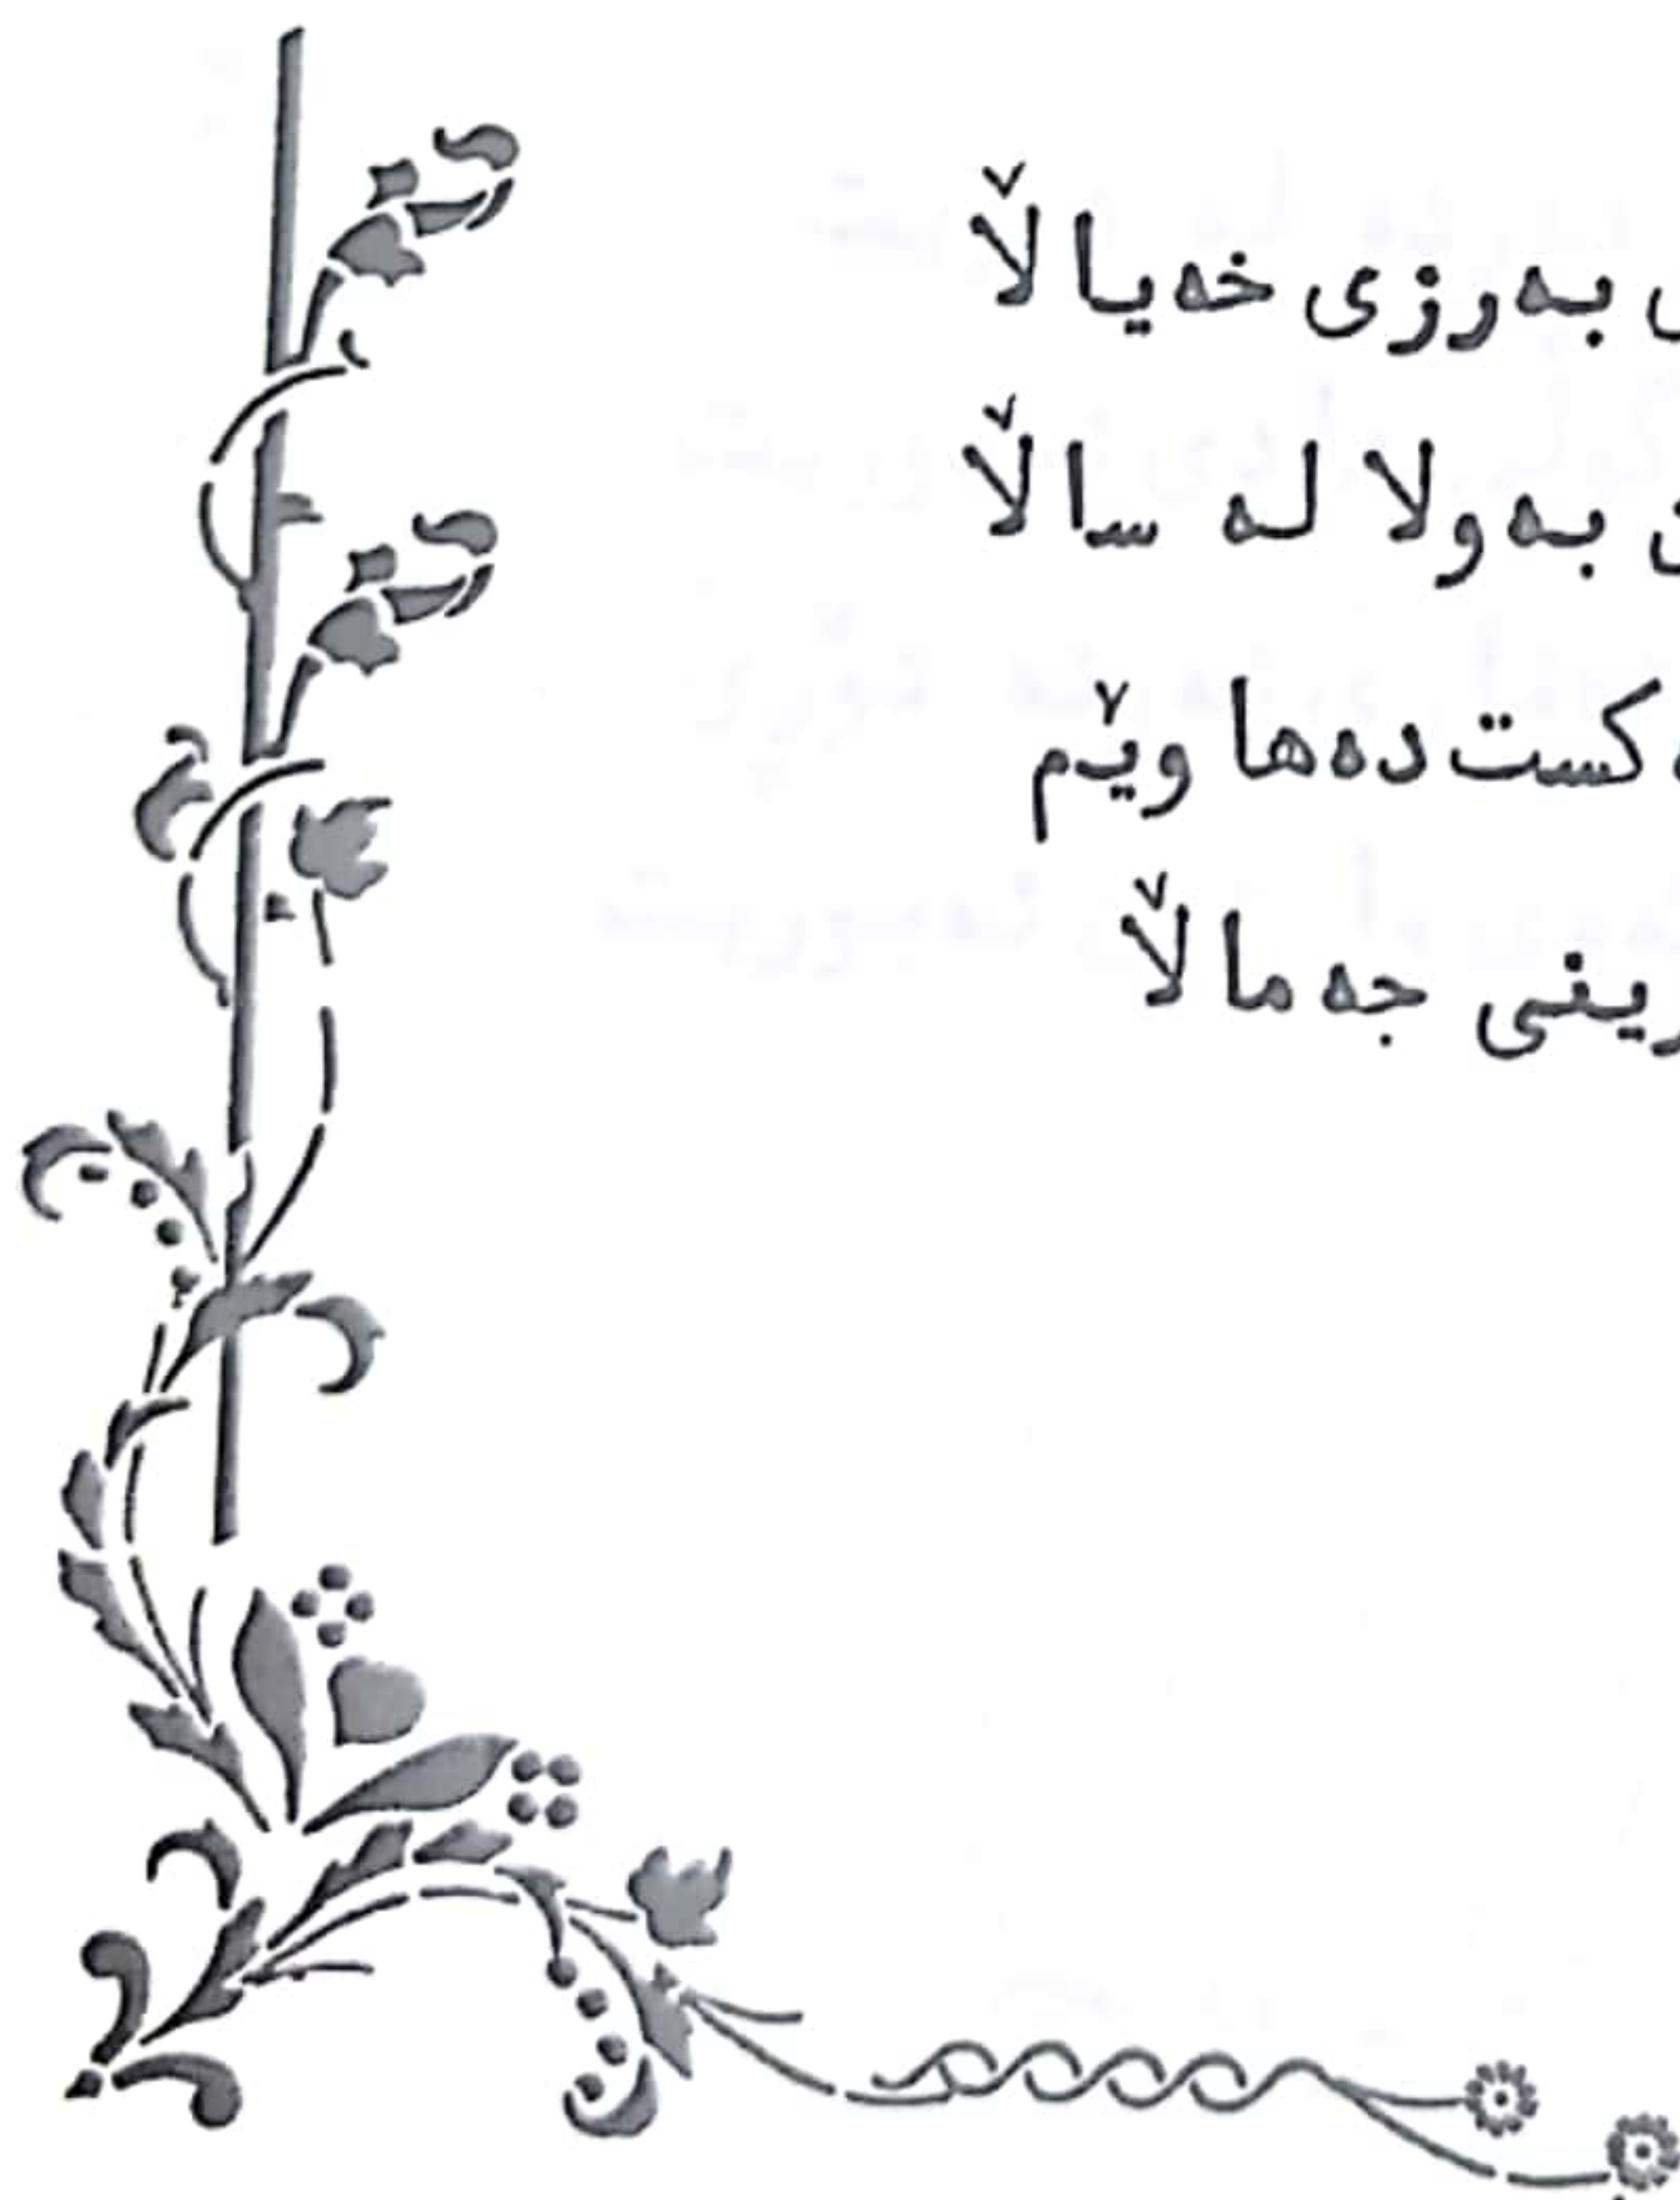 بەرزی خەیاڵا
بەولا لە ساڵا
کست دەهاوێم
جەماڵا